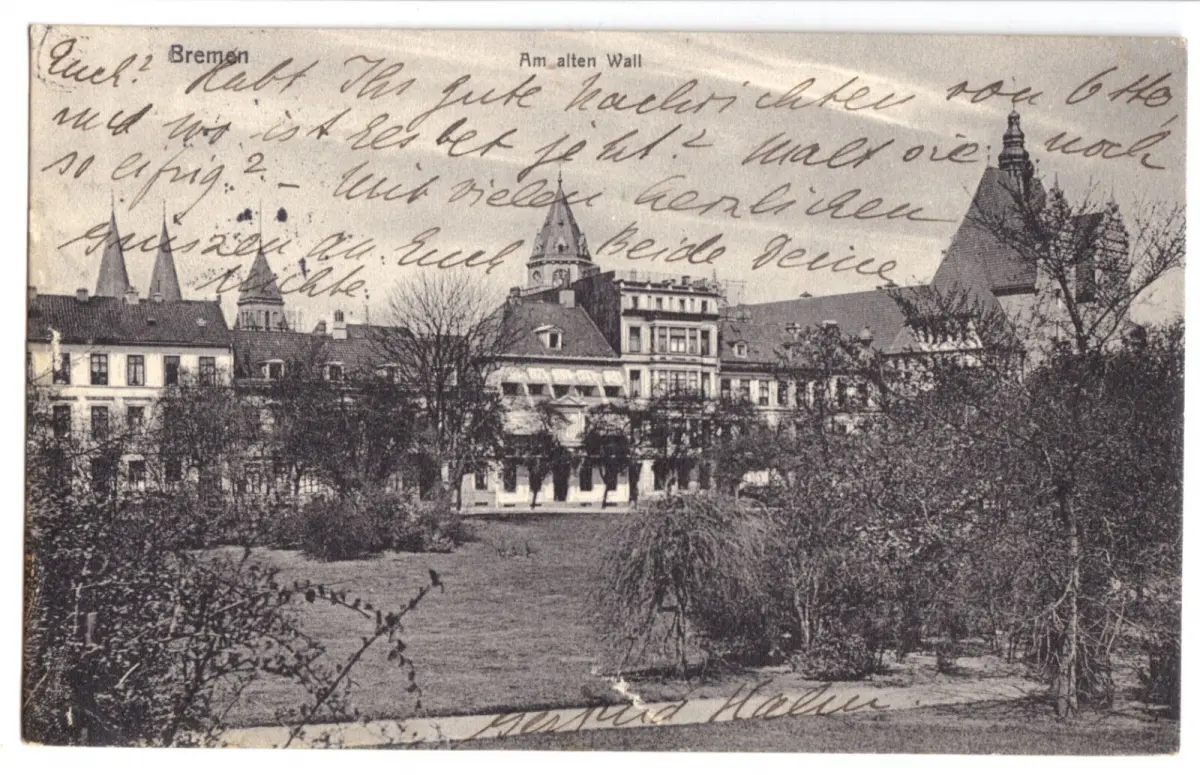 Bremen
Am alten Wall
Euch? Habt Ihr gute Nachrichten von Otto,
und wo ist Elsbet jetzt? Malt sie noch
so eifrig? – Mit vielen herzlichen
Grüszen an Euch Beide Deine
Nichte
Gertrud Hahn